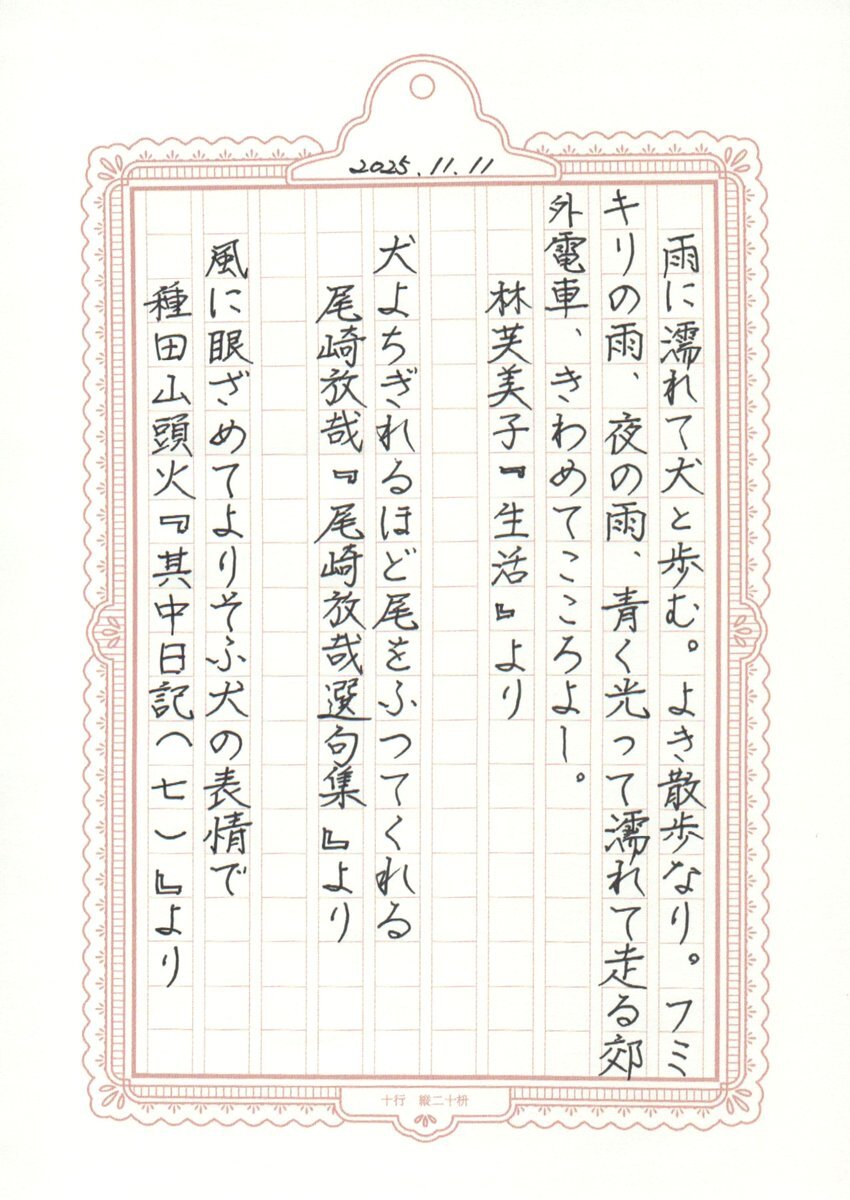 2025.11.11
雨に濡れて犬と歩む。よき散歩なり。フミ
キリの雨、夜の雨、青く光って濡れて走る郊
外電車、きわめてこころよし。
林芙美子『生活』より
犬よちぎれるほど尾をふつてくれる
尾崎放哉『尾崎放哉選句集』より
風に眼ざめてよりそふ犬の表情で
種田山頭火『其中日記（七）』より
十行 縦二十枡